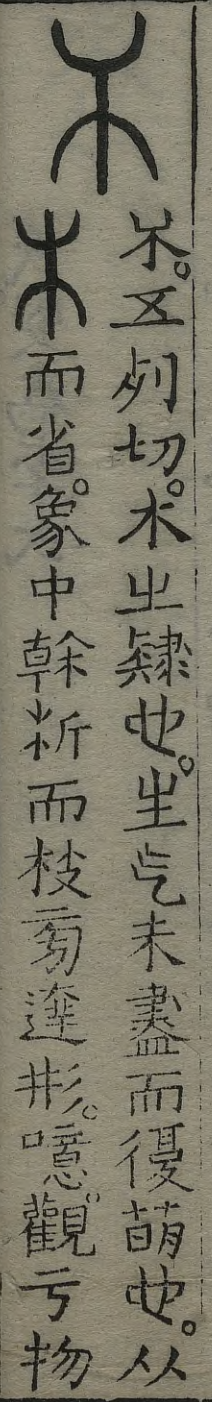 𣎴
𣎴。五列切。木㞢肄也。生气未盡而復萌也。从
木而省。象中榦析而枝㫄達形。噫。觀亏物